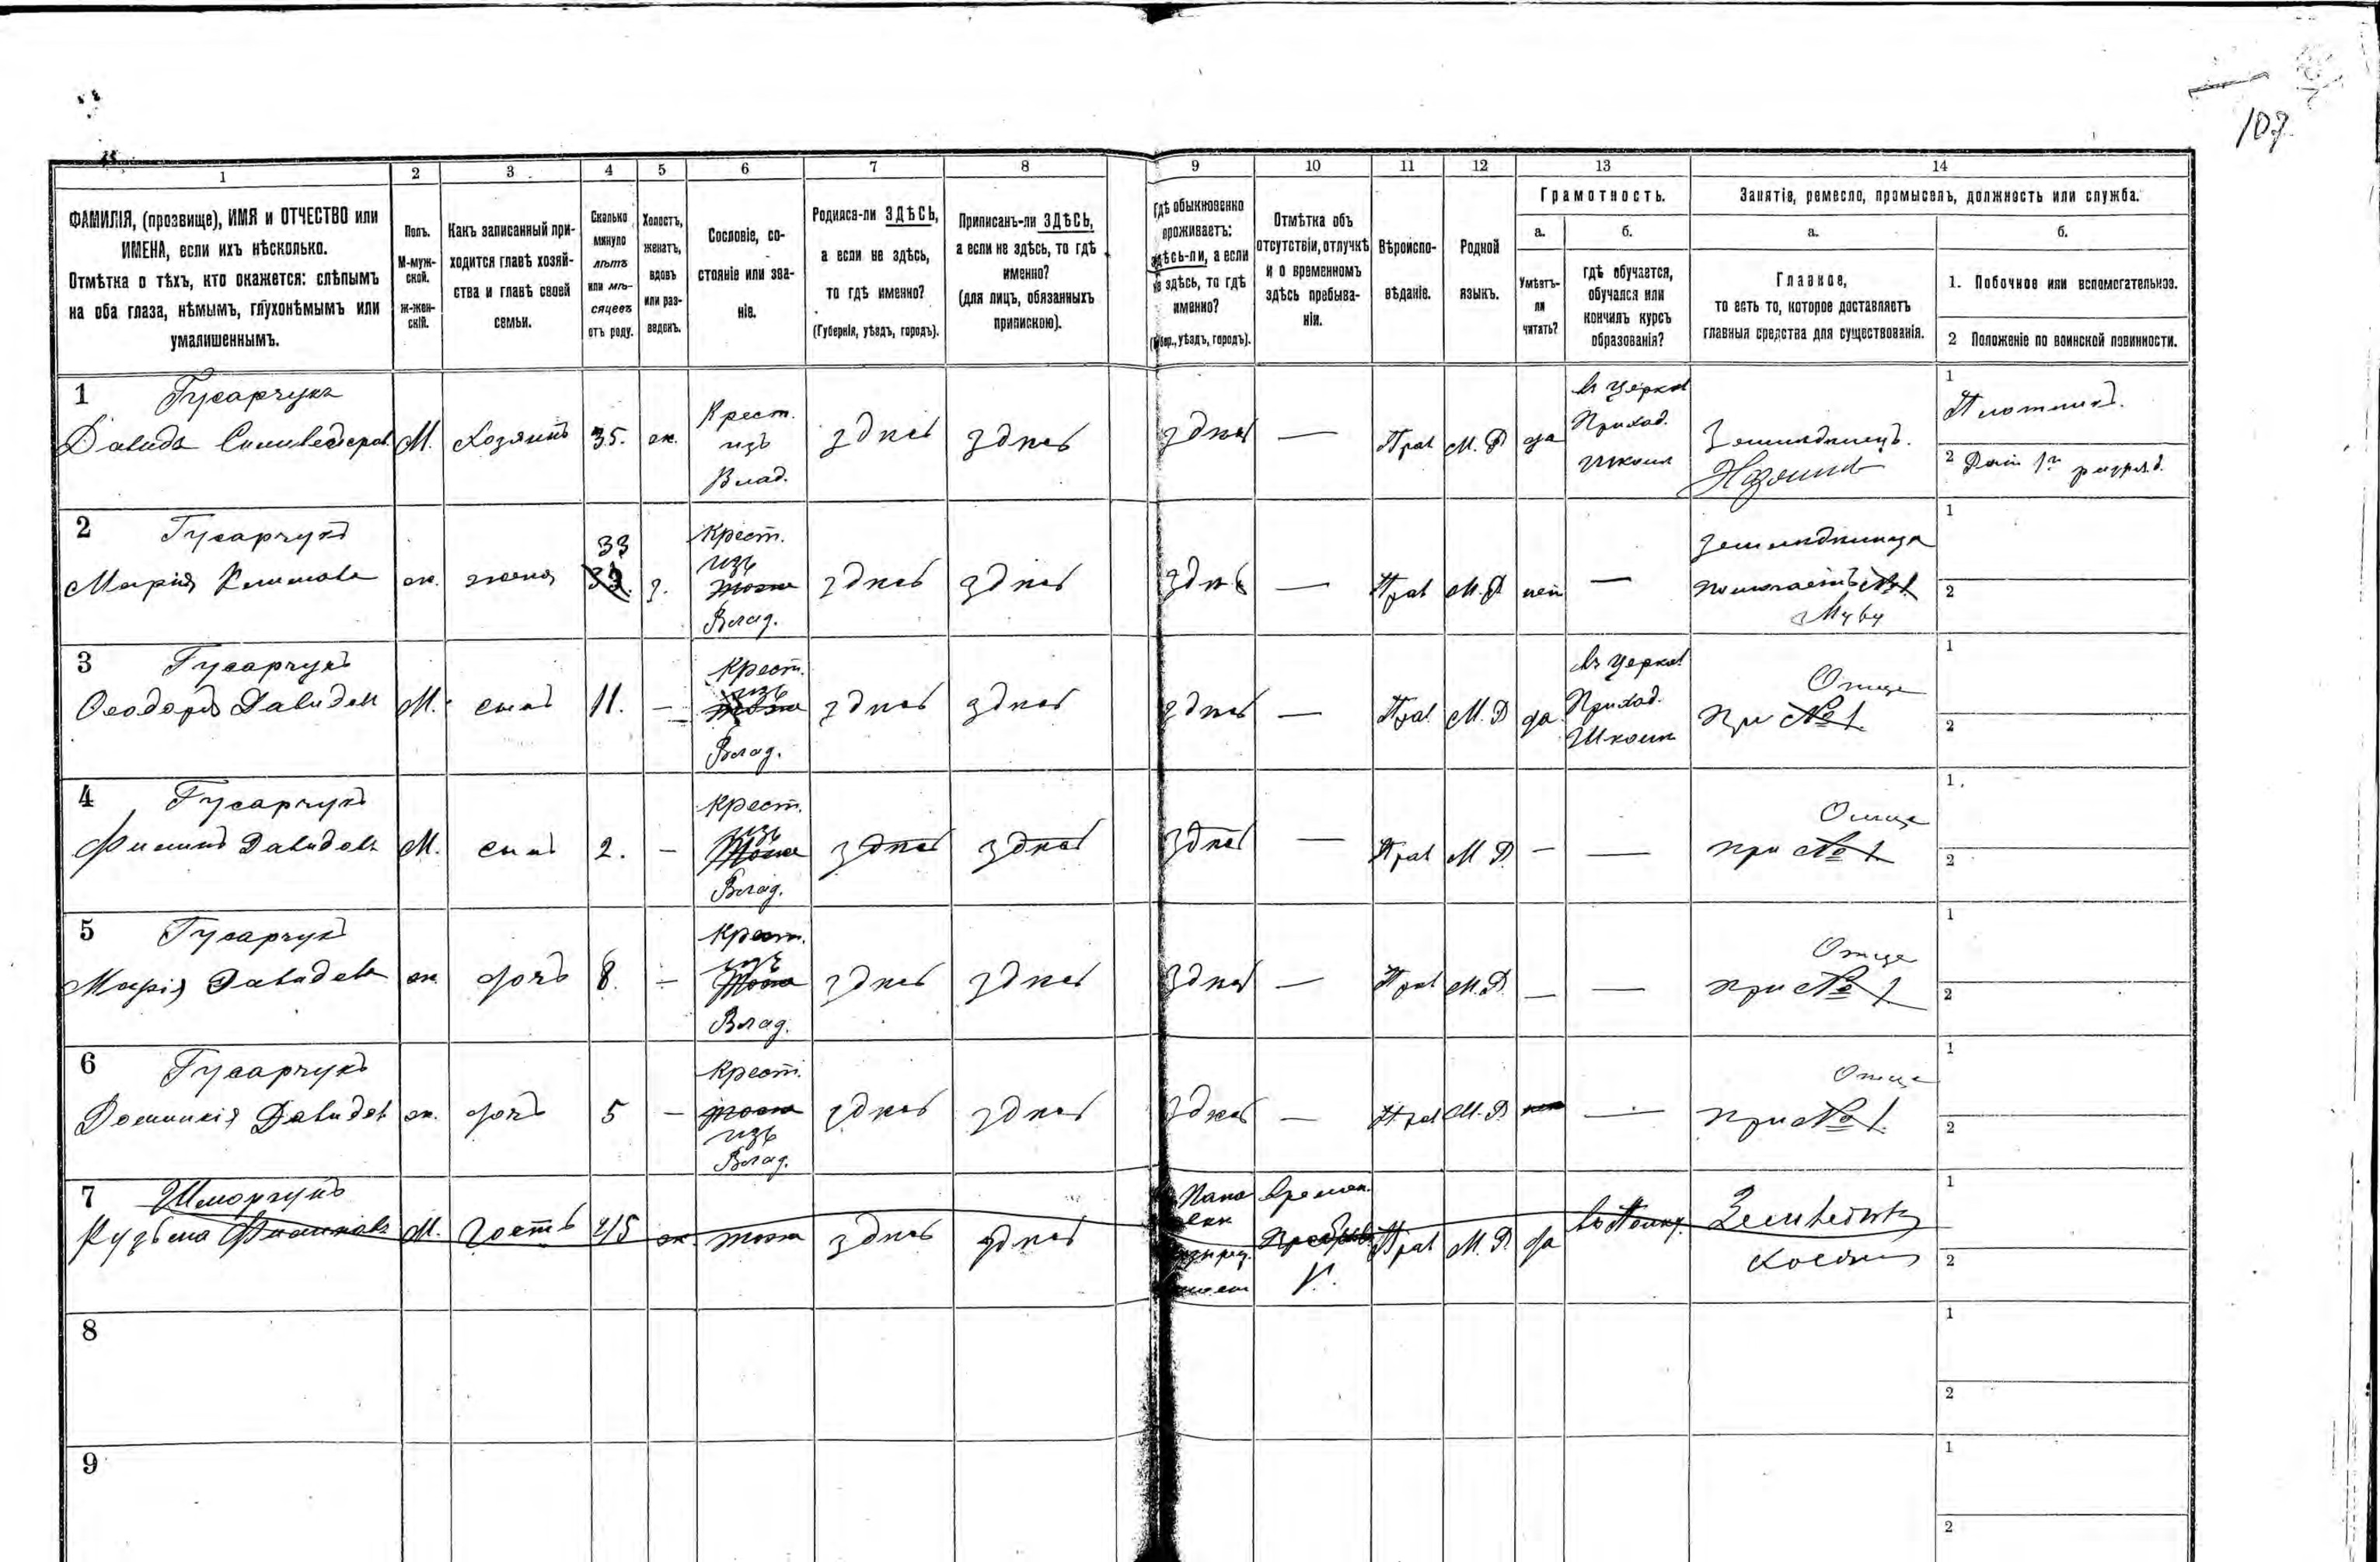 107.
1 2 3 4 5 6 7 8 9 10 11 12 13 14
ФАМИЛІЯ, (прозвище), ИМЯ и ОТЧЕСТВО или
ИМЕНА, если ихъ нѣсколько.
Отмѣтка о тѣхъ, кто окажется: слѣпымъ
на оба глаза, нѣмымъ, глухонѣмымъ или
умалишеннымъ.
Полъ.
М-муж-
ской.
Ж-жен-
скій.
Какъ записанный при-
ходится главѣ хозяй-
ства и главѣ своей
семьи.
Сколько
минуло
лѣтъ
или мѣ-
сяцевъ
отъ роду.
Холостъ,
женатъ,
вдовъ
или раз-
веденъ.
Сословіе, со-
стояніе или зва-
ніе.
Родился-ли ЗДѢСЬ,
а если не здѣсь,
то гдѣ именно?
(Губернія, уѣздъ, городъ).
Приписанъ-ли ЗДѢСЬ,
а если не здѣсь, то гдѣ
именно?
(для лицъ, обязанныхъ
припискою).
Гдѣ обыкновенно
проживаетъ:
здѣсь-ли, а если
не здѣсь, то гдѣ
именно?
(Губер., уѣздъ, городъ).
Отмѣтка объ
отсутствіи, отлучкѣ
и о временномъ
здѣсь пребыва-
ніи.
Вѣроиспо-
вѣданіе.
Родной
языкъ.
Грамотность.
а.
Умѣетъ-
ли
читать?
б.
гдѣ обучается,
обучался или
кончилъ курсъ
образованія?
Занятіе, ремесло, промыселъ, должность или служба.
а.
Главное,
то есть то, которое доставляетъ
главныя средства для существованія.
б.
1. Побочное или вспомогательное.
2 Положеніе по воинской повинности.
1 Гусарчукъ
Давидъ М. Хозяинъ 35. ж.
Крест.
изъ
Влад.
здѣсь здѣсь здѣсь — Прав М. Р да
въ Церков
Приход.
Школѣ
Земледѣлецъ.
Хозяинъ
1 Плотникъ.
2
2 Гусарчукъ
Марія Климова ж. жена 33 33. з.
Крест.
изъ
тоже
Влад.
здѣсь здѣсь здѣсь — Прав М. Р нѣт —
земледѣлица
помогаетъ №1.
Мужу
1
2
3 Гусарчукъ
Ѳеодоръ Давидов М. сынъ 11. —
Крест.
изъ
тоже
Влад.
здѣсь здѣсь здѣсь — Прав. М. Р да
въ Церков
Приход.
Школѣ
Отце
при №1.
1
2
4 Гусарчукъ
Филипъ Давидовъ М. сынъ 2. —
Крест.
изъ
тоже
Влад.
здѣсь здѣсь здѣсь — Прав М Р. — —
Отце
при №1.
1
2
5 Гусарчукъ
Марія Давидова ж. дочь 8. —
Крест.
изъ
тоже
Влад.
здѣсь здѣсь здѣсь — Прав М. Р. — —
Отце
при №1
1
2
6 Гусарчукъ
Доминикія Давидов ж. дочь 5 —
Крест.
тоже
изъ
Влад.
здѣсь здѣсь здѣсь — Прав М. Р. —
Отце
при №1.
1
2
7
Кузьма М. гость 45 ж. тоже здѣсь здѣсь
Времен.
Прав М. Р. да
1
2
8
1
2
9
1
2